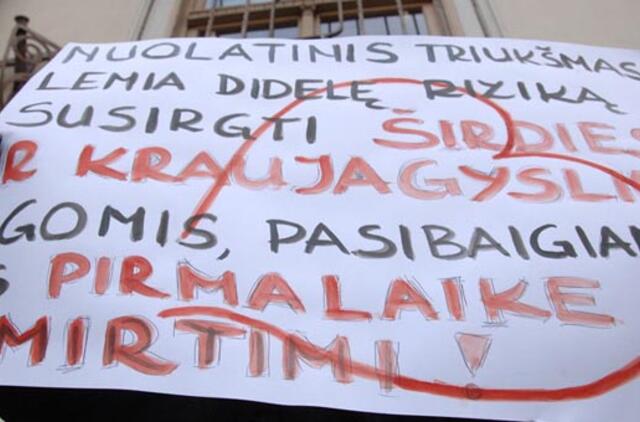 NUOLATINIS TRIUKŠMAS
LEMIA DIDELĘ RIZIKĄ
SUSIRGTI ŠIRDIES
R KRAUJAGYSLI
GOMIS, PASIBAIGIAN
S PIRMALAIKE
MIRTIMI!